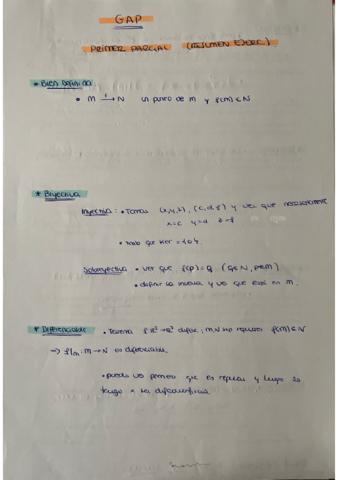 GAP
PRIMER PARCIAL (RESUMEN EXERC)
* Bien definida:
• M → N un punto de M y f(M) ⊂ N
* Biyectiva
Inyectiva: • Tomas (x,y,z), (c,d,f) y ves que necesariamente
x=c y=d z=f
• que ker = {0}.
Sobreyectiva • ver que f(p)=q (q∈N, p∈M)
• definir la inversa y ves que está en M.
* Diferenciable • Teorema f: R³→R³ difble, M,N sup regulares f(M)⊂N
→ f|M: M→N es diferenciable.
• puedo ver primero que es regular y luego lo
tengo